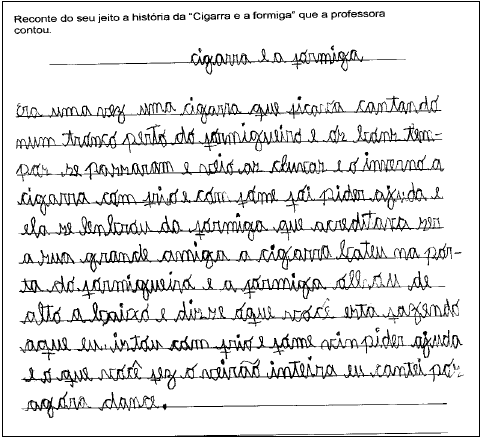 Reconte do seu jeito a história da "Cigarra e a formiga" que a professora
contou.
cigarra e a formiga
Era uma vez uma cigarra que ficava cantando
num tronco perto do formigueiro e os bons tem-
pos se passaram e veio as chuvas e o inverno a
cigarra com frio e com fome foi pider ajuda e
ela se lenbrou da formiga que acreditava ser
a sua grande amiga a cigarra bateu na por-
ta do formigueiro e a formiga olhou de
alto a baixo e disse oque você esta fazendo
aque eu instou com frio e fome vin pider ajuda
e o que você fez o veirão inteira eu cantei por
agora dance.